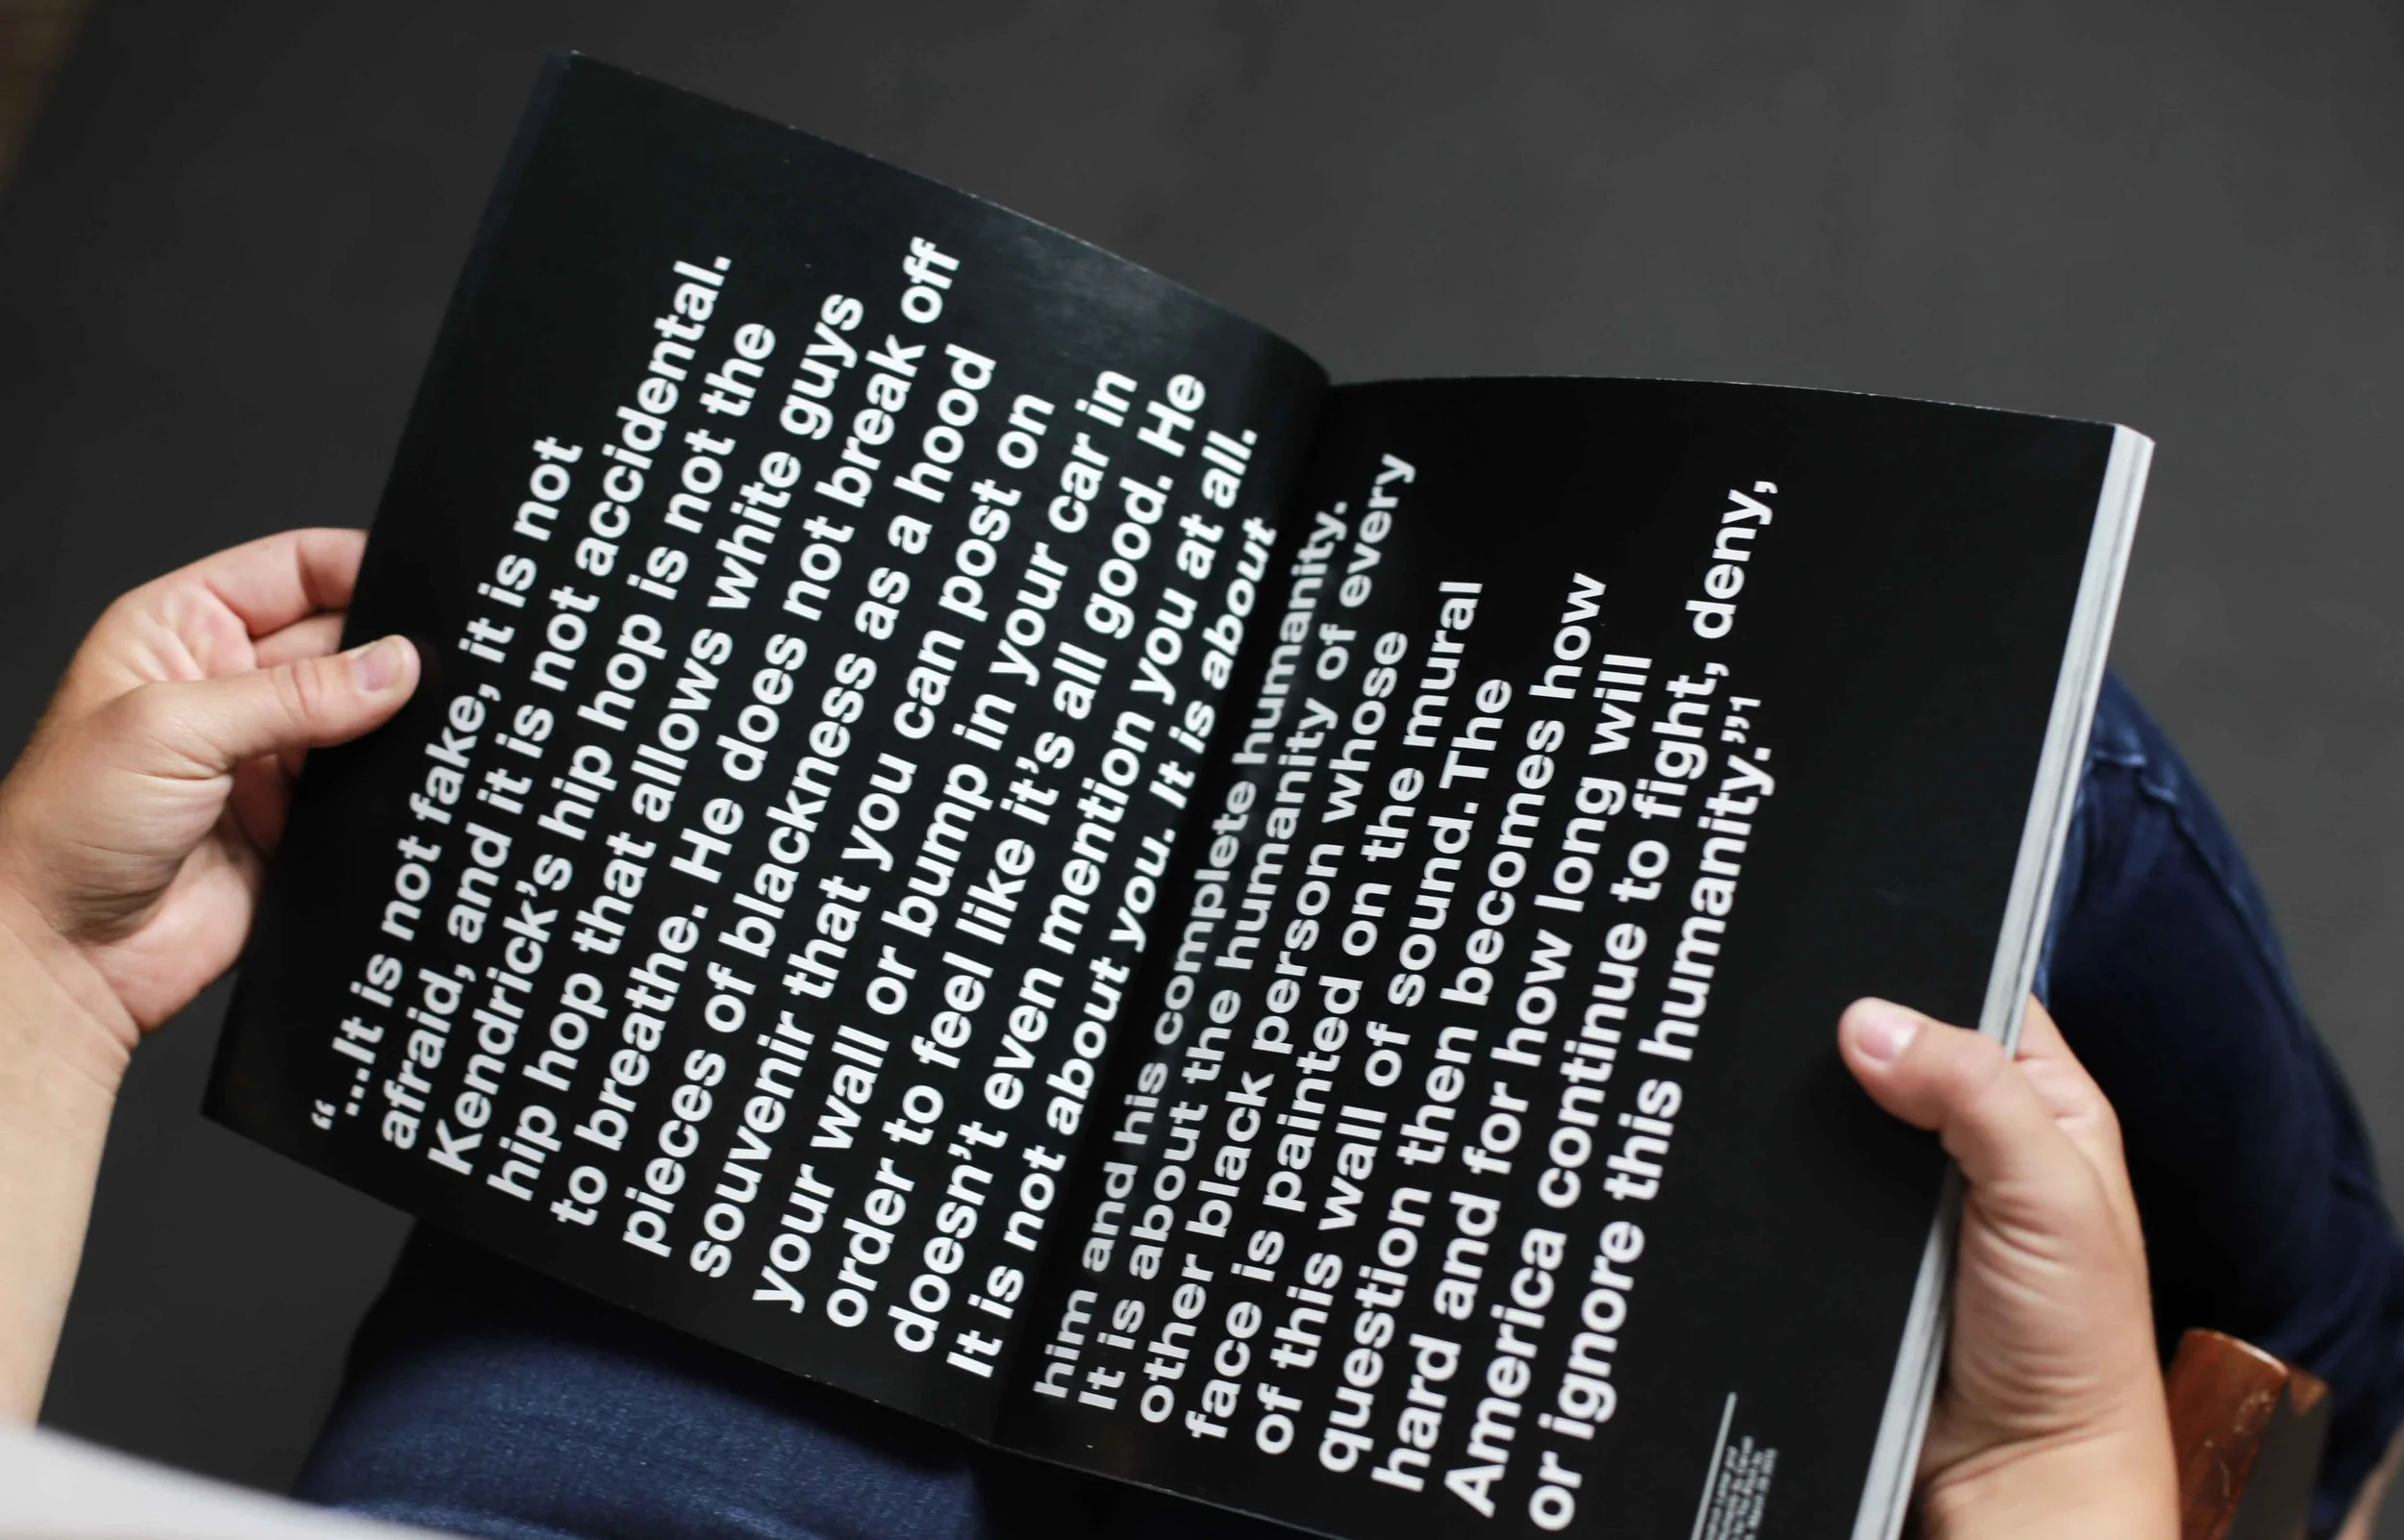 “...It is not fake, it is not
afraid, and it is not accidental.
Kendrick’s hip hop is not the
hip hop that allows white guys
to breathe. He does not break off
pieces of blackness as a hood
souvenir that you can post on
your wall or bump in your car in
order to feel like it’s all good. He
doesn’t even mention you at all.
It is not about you. It is about
him and his complete humanity.
It is about the humanity of every
other black person whose
face is painted on the mural
of this wall of sound. The
question then becomes how
hard and for how long will
America continue to fight, deny,
or ignore this humanity.”1